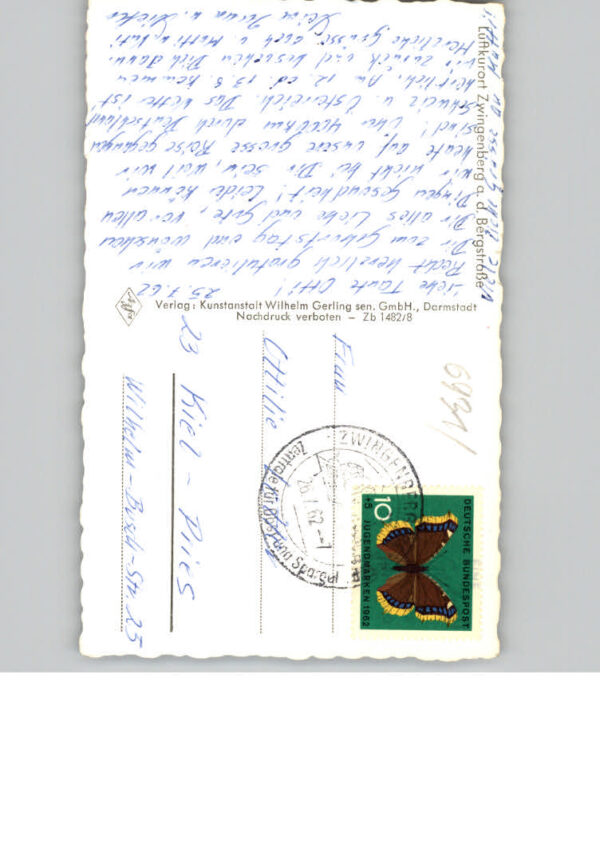 Luftkurort Zwingenberg a. d. Bergstraße
25.7.62
Liebe Tante Otti!
Recht herzlich gratulieren wir
Dir zum Geburtstag und wünschen
Dir alles Liebe und Gute, vor allen
Dingen Gesundheit! Leider können
wir nicht bei Dir sein, weil wir
heute auf unsere grosse Reise gegangen
sind! Über 4000 km durch Deutschland
Schweiz u. Österreich. Das Wetter ist
herrlich. Am 12. od. 13.8. kommen
wir zurück und besuchen Dich dann.
Herzliche Grüsse auch v. Mutti u. Vati
Deine u. Dieter
Verlag: Kunstanstalt Wilhelm Gerling sen. GmbH., Darmstadt
Nachdruck verboten – Zb 1482/8
Frau
Ottilie
23 Kiel - Pries
Wilhelm-Busch-Str. 25
ZWINGENBERG
62
10
+5 JUGENDMARKEN 1962
DEUTSCHE BUNDESPOST